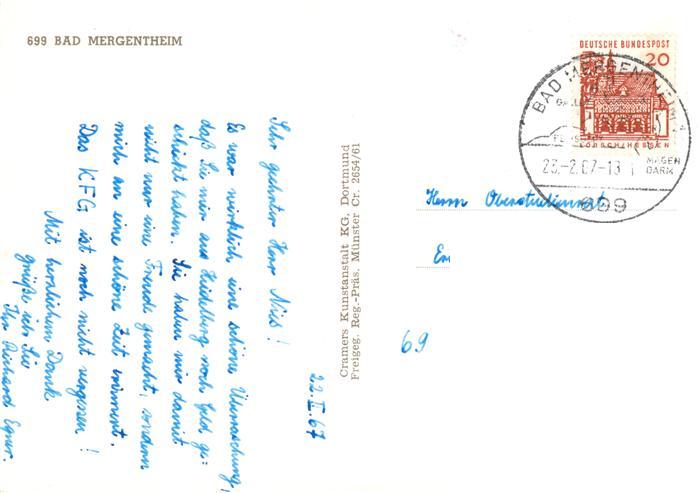 699 BAD MERGENTHEIM
22.II.67
Sehr geehrter Herr Nies!
Es war wirklich eine schöne Überraschung,
daß Sie mir aus Heidelberg noch Geld ge=
schickt haben. Sie haben mir damit
nicht nur eine Freude gemacht, sondern
mich an eine schöne Zeit erinnert.
Das KFG ist noch nicht vergessen!
Mit herzlichem Dank
grüße ich Sie
Ihr Richard
Cramers Kunstanstalt KG. Dortmund
Freigeg. Reg.-Präs. Münster Cr. 2654/61
DEUTSCHE BUNDESPOST
20
LORSCH/HESSEN
BAD MERGENTHEIM
23.-2.67-18
MAGEN
DARM
699
Herrn Oberstudienrat
69